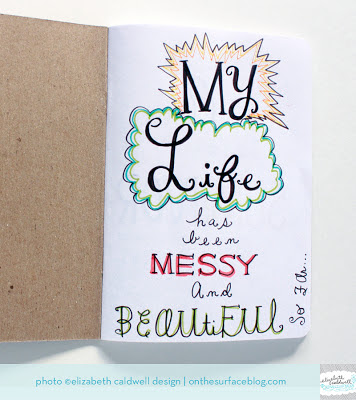 My
Life
has
been
MESSY
And
BEAUtiFUL
So Far...
photo ©elizabeth caldwell design | onthesurfaceblog.com
elizabeth
caldwell